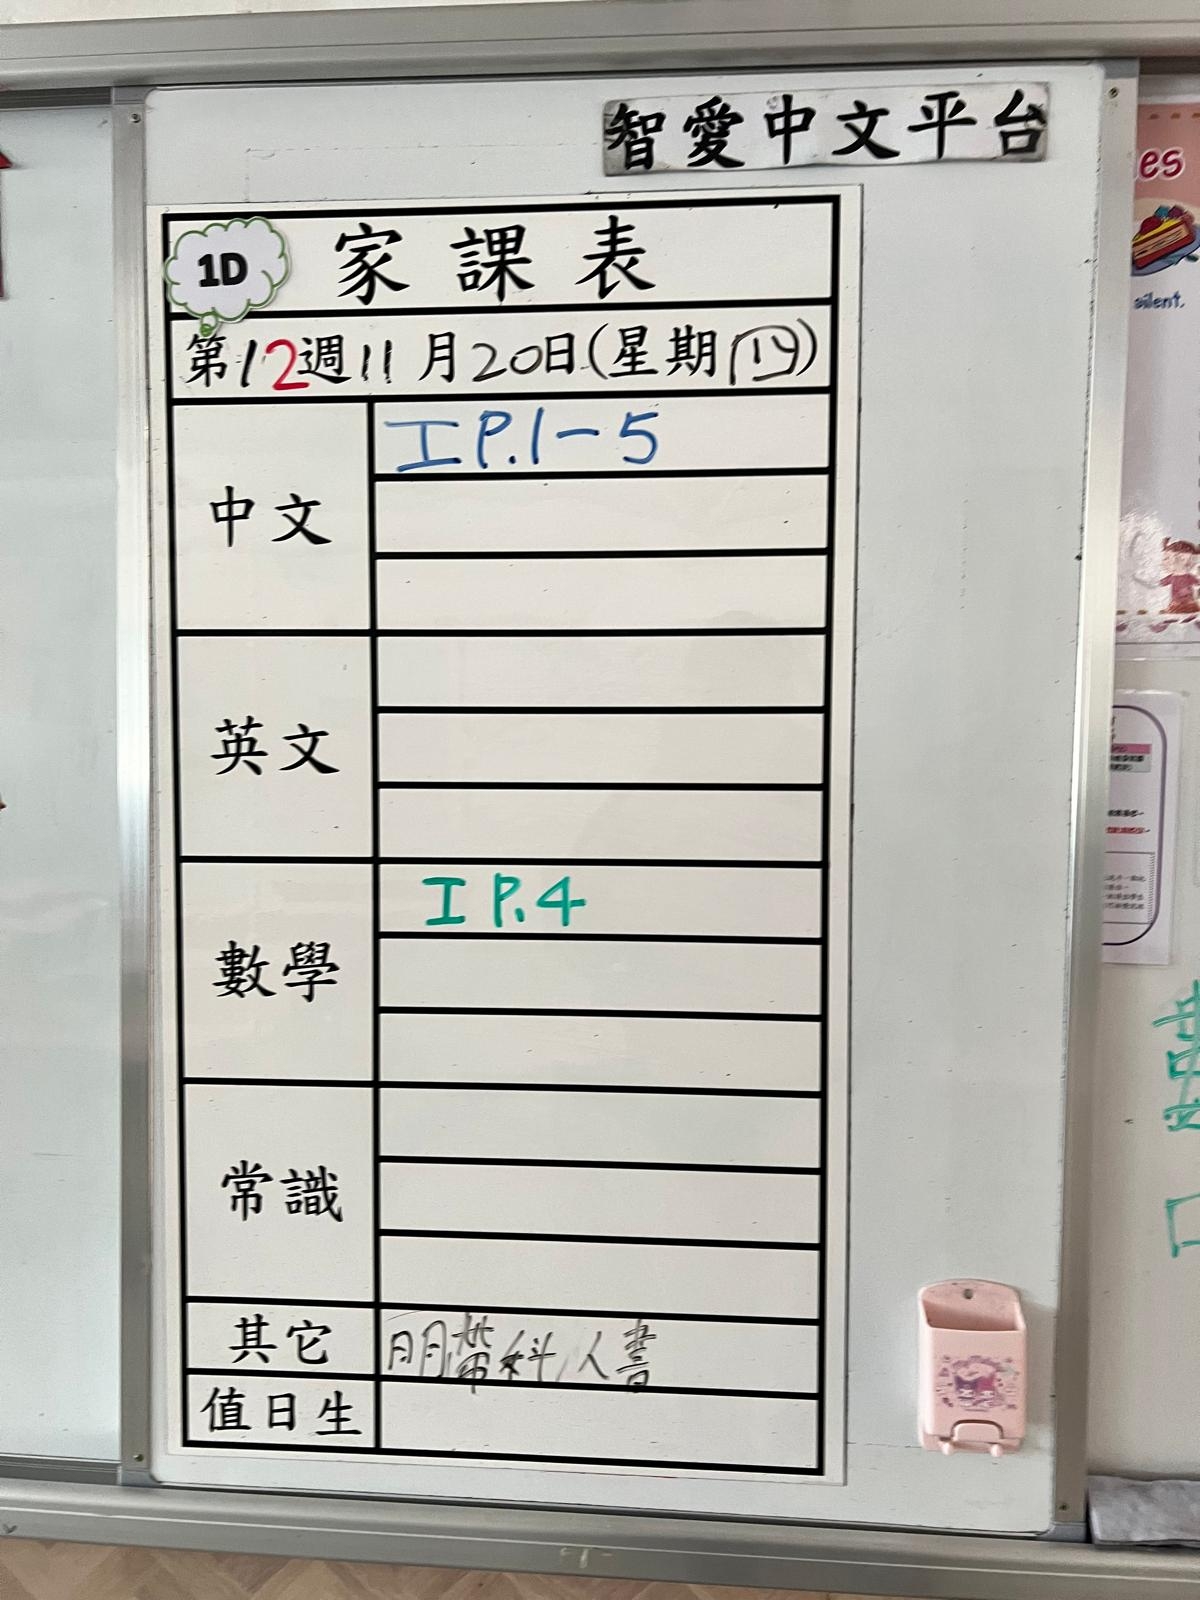 智愛中文平台
1D
家課表
第12週11月20日(星期四)
中文
工P.1-5
英文
數學
工P.4
常識
其它
明帶科/人書
值日生
es
silent.